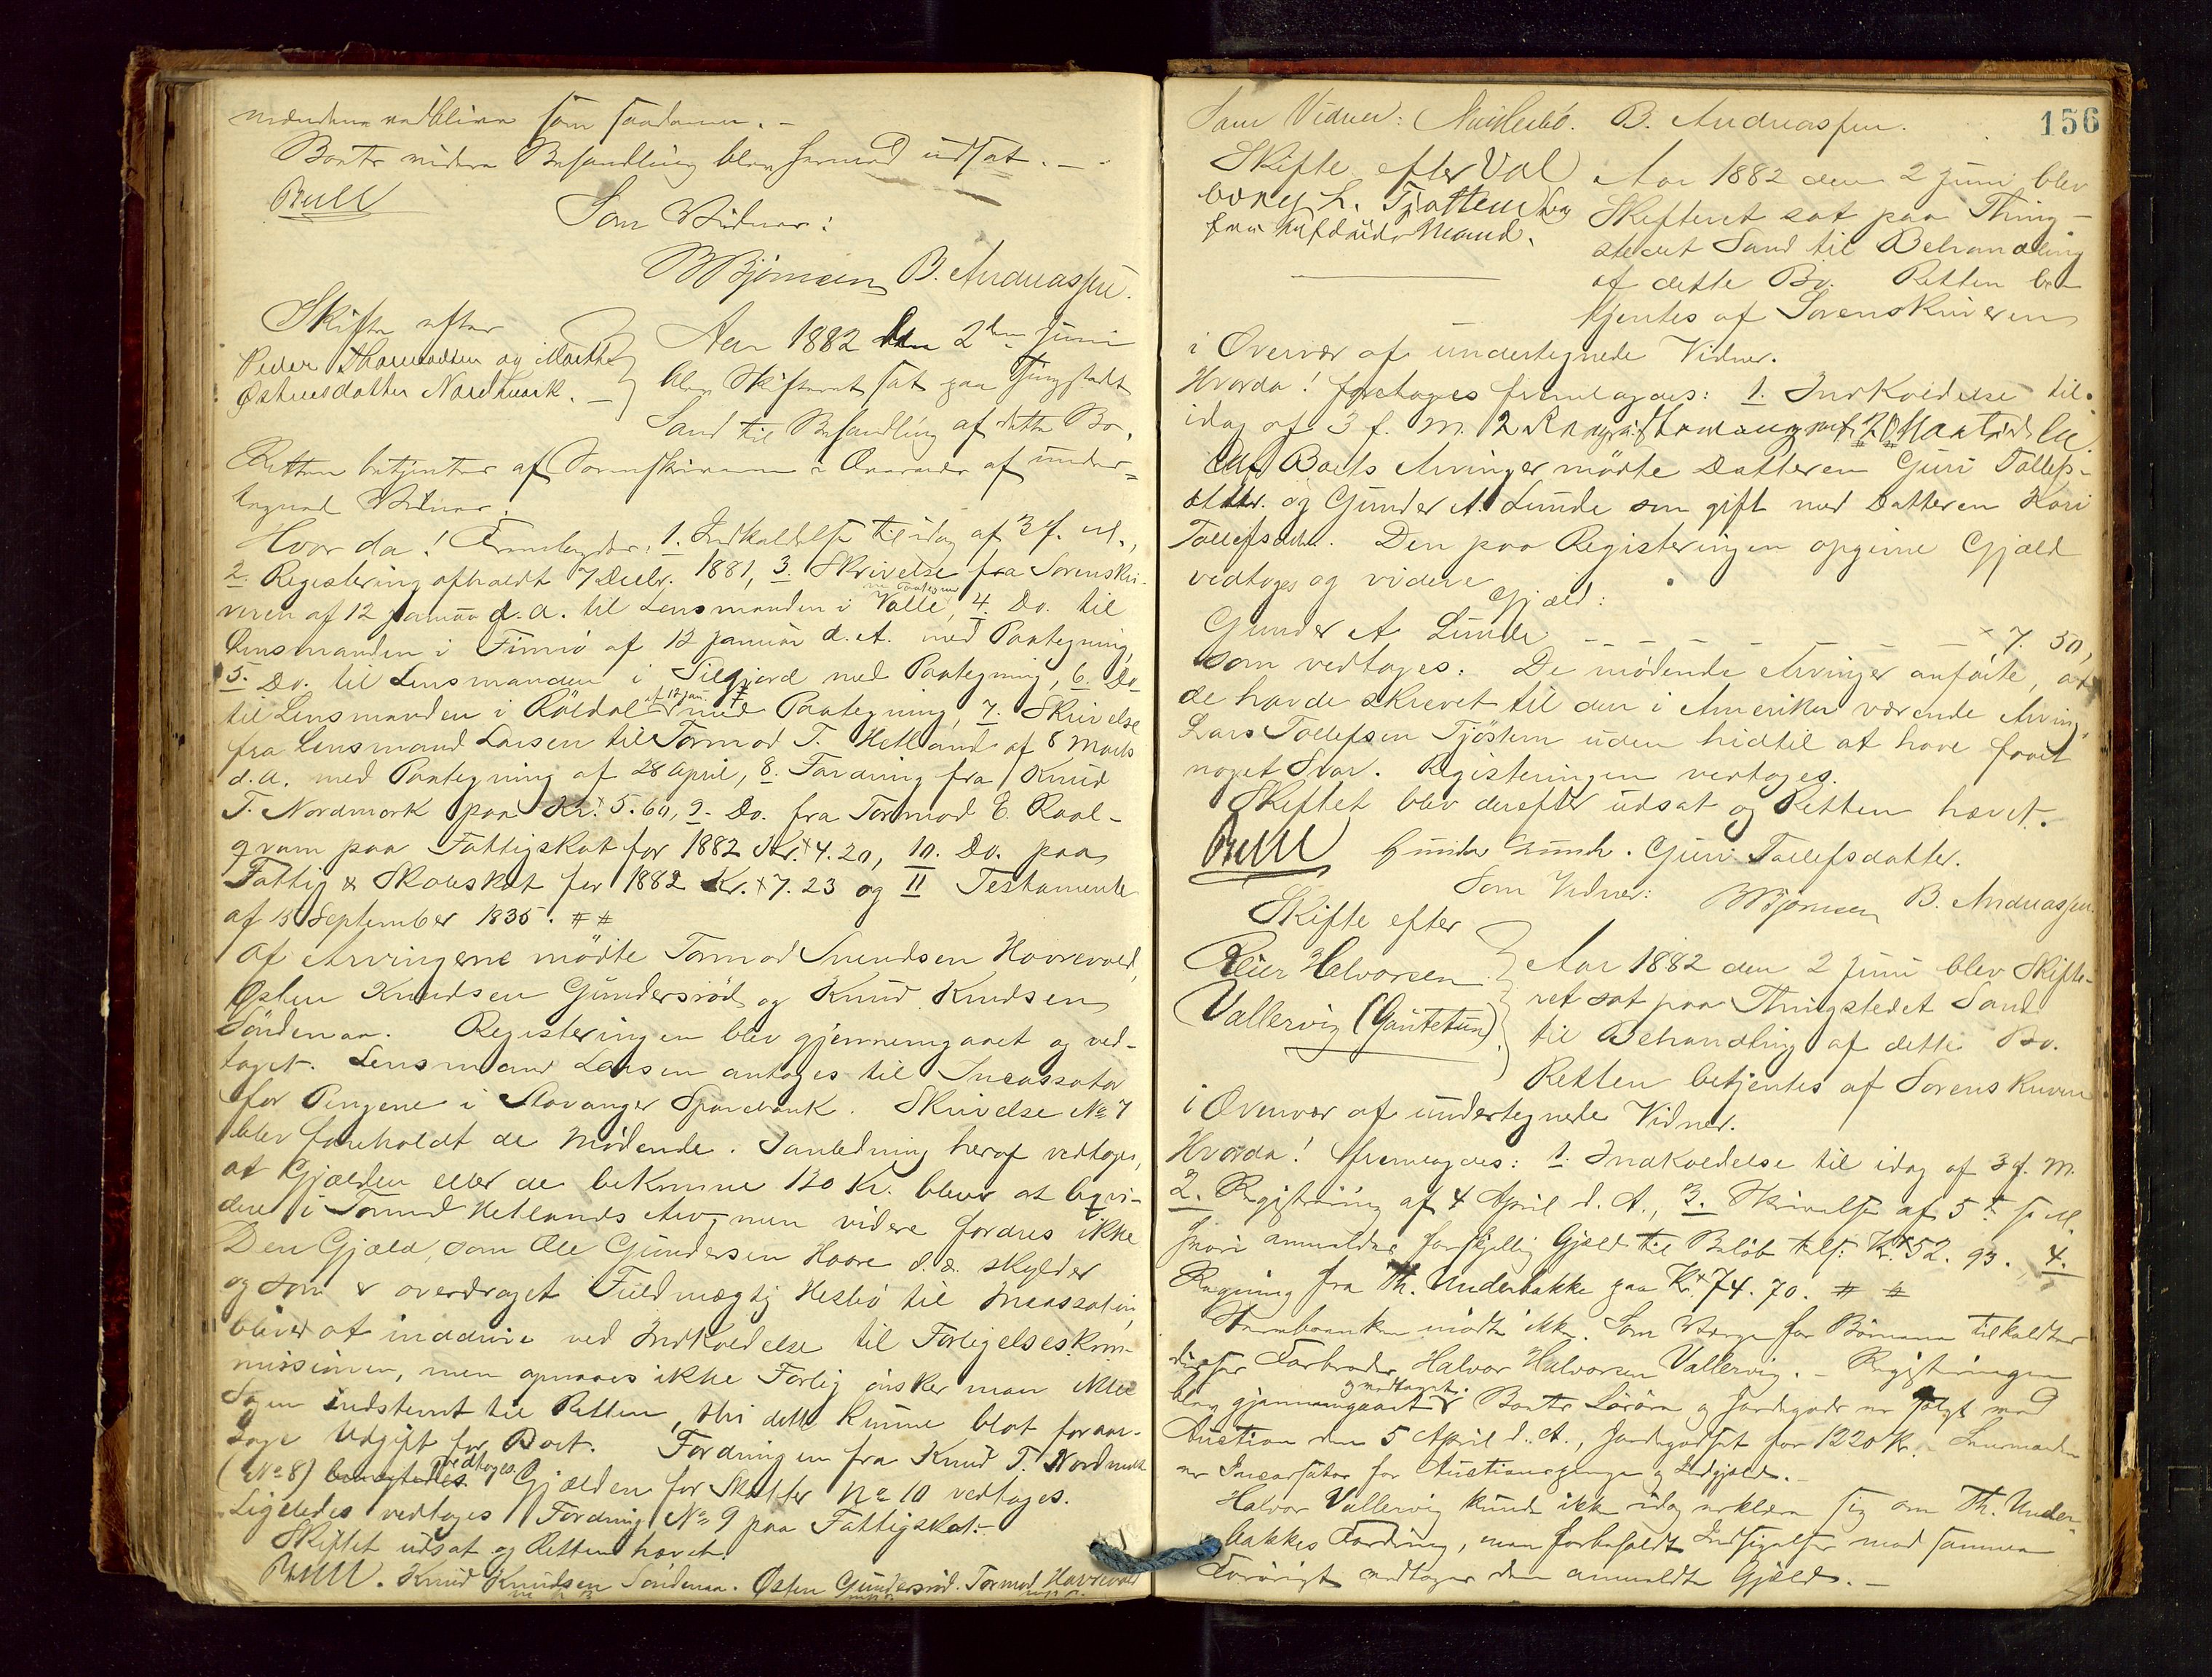 vedblive som saadanne. –
Boets videre Behandling blev hermed udsat. –
Bull
Som Vidner:
Bjørnsen B. Andreassen.
Skifte efter
Peder Thormodsen og Marthe
Østensdatter Nordmark. –
Aar 1882 den 2den Juni
blev Skifteret sat paa Thingstedet
Sand til Behandling af dette Bo.
Retten betjentes af Sorenskriveren i Overvær af under=
tegnede Vidner.
Hvor da! Fremlagdes: 1. Indkaldelse til idag af 3 f. M.,
2. Registering afholdt 7 Decbr. 1881, 3. Skrivelse fra Sorenskri-
veren af 12 Januar d. A. til Lensmanden i Valle, 4. Do. til
Lensmanden i Finnö af 12 Januar d. A. med Paategning,
5. Do. til Lensmanden i Silgjord med Paategning, 6. Do
til Lensmanden i Röldal af 12 Jan med Paategning, 7. Skrivelse
fra Lensmand Larsen til Tormod T. Hetland af 8 Marts
d. A. med Paategning af 28 April, 8. Fordring fra Knud
T. Nordmork paa Kr. 5.60, 9. Do. fra Tormod E. Raal-
gvam paa Fattigskat for 1882 Kr. 4.20, 10. Do. paa
Fattig & Skoleskat for 1882 Kr. 7.23 og 11 Testamente
af 15 September 1835. # #
Af Arvingerne mödte Tormod Svendsen Hovrevold,
Østen Knudsen Gundersröd og Knud Knudsen
Söndenaa. Registeringen blev gjennemgaaet og ved-
taget. Lensmand Larsen antages til Incassator
for Pengene i Stavanger Sparebank. Skrivelse No 7
blev foreholdt de Mödende. I anledning heraf vedtoges,
at Gjælden eller de bekomne 120 Kr. bliver at liqvi-
dere i Tormod Hetlands Arv, men videre fordres ikke
Den Gjæld, som Ole Gundersen Hovre d. æ. skylder
og som er overdraget Fuldmægtig Hesbö til Incassation,
bliver at inddrive ved Indkaldelse til Forligelseskom-
missionen, men opnaaes ikke Forlig önsker man ikke
Sagen indstevnt til Retten, thi dette kunne blot foraar-
sage Udgift for Boet. Fordringen fra Knud T. Nordmork
(No 8) vedtoges. Gjælden for Skatter No 10 vedtoges.
Ligeledes vedtoges Fordring No 9 paa Fattigskat. –
Skiftet udsat og Retten hævet.
Bull. Knud Knudsen Söndenaa. Østen Gundersröd. Tormod Hovrevold
156
Som Vidner: B. Andreassen.
Skifte efter Val
borg L. Tjøstem
fra
Mand.
Aar 1882 den 2 Juni blev
Skifteret sat paa Thing-
stedet Sand til Behandling
af dette Bo. Retten be
tjentes af Sorenskriveren
i Overvær af undertegnede Vidner.
Hvorda! foretoges fremlagdes: 1. Indkaldelse til
idag af 3 f. M. 2
Af Boets Arvinger mödte Datteren Guri Tollefs-
datter. og Gunder A. Lunde som gift med Datteren Kari
Tollefsdatter. Den paa Registeringen opgivne Gjæld
vedtoges og videre Gjæld:
Gunder A Lunde – – – – – – 7. 50,
som vedtoges. De mödende Arvinger anförte, at
de havde skrevet til den i Amerika værende Arving
Lars Tollefsen Tjöstem uden hidtil at have faaet
noget Svar. Registeringen vedtoges.
Skiftet blev derefter udsat og Retten hævet.
Bull Gunder Lunde. Guri Tollefsdatter.
Som Vidner: Bjørnsen B. Andreassen.
Skifte efter
Reier Halvorsen
Vallervig (Gautetun).
Aar 1882 den 2 Juni blev Skifte-
ret sat paa Thingstedet Sand
til Behandling af dette Bo.
Retten betjentes af Sorenskriveren
i Overvær af undertegnede Vidner.
Hvorda! fremlagdes: 1. Indkaldelse til idag af 3 f. M.
2. Registrering af 4 April d. A., 3. Skrivelse af 5te f. M.
hvori anmeldes forskjellig Gjæld til Beløb tils: Kr. 52. 93. 4.
Regning fra Th. Underbakke paa Kr. 74. 70. # #
Stervboenken mödte ikke. Som Værge for Börnene tilkaldtes
disses Farbroder Halvor Halvorsen Vallervig. – Registreringen
blev gjennemgaaet og vedtaget. Boets Lösöre og Jordegods er solgt ved
Auction den 5 April d. A., Jordegodset for 1220 Kr. Lensmanden
er Incassator for Auctionspenge og Udgjæld. –
Halvor Vallervig kunde ikke idag erklære sig om Th. Under-
bakkes Fordring, men forbeholdt Indsigelse mod samme
Forövrigt vedtoges den anmeldte Gjæld. –